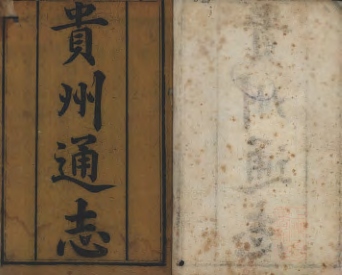 貴州通志